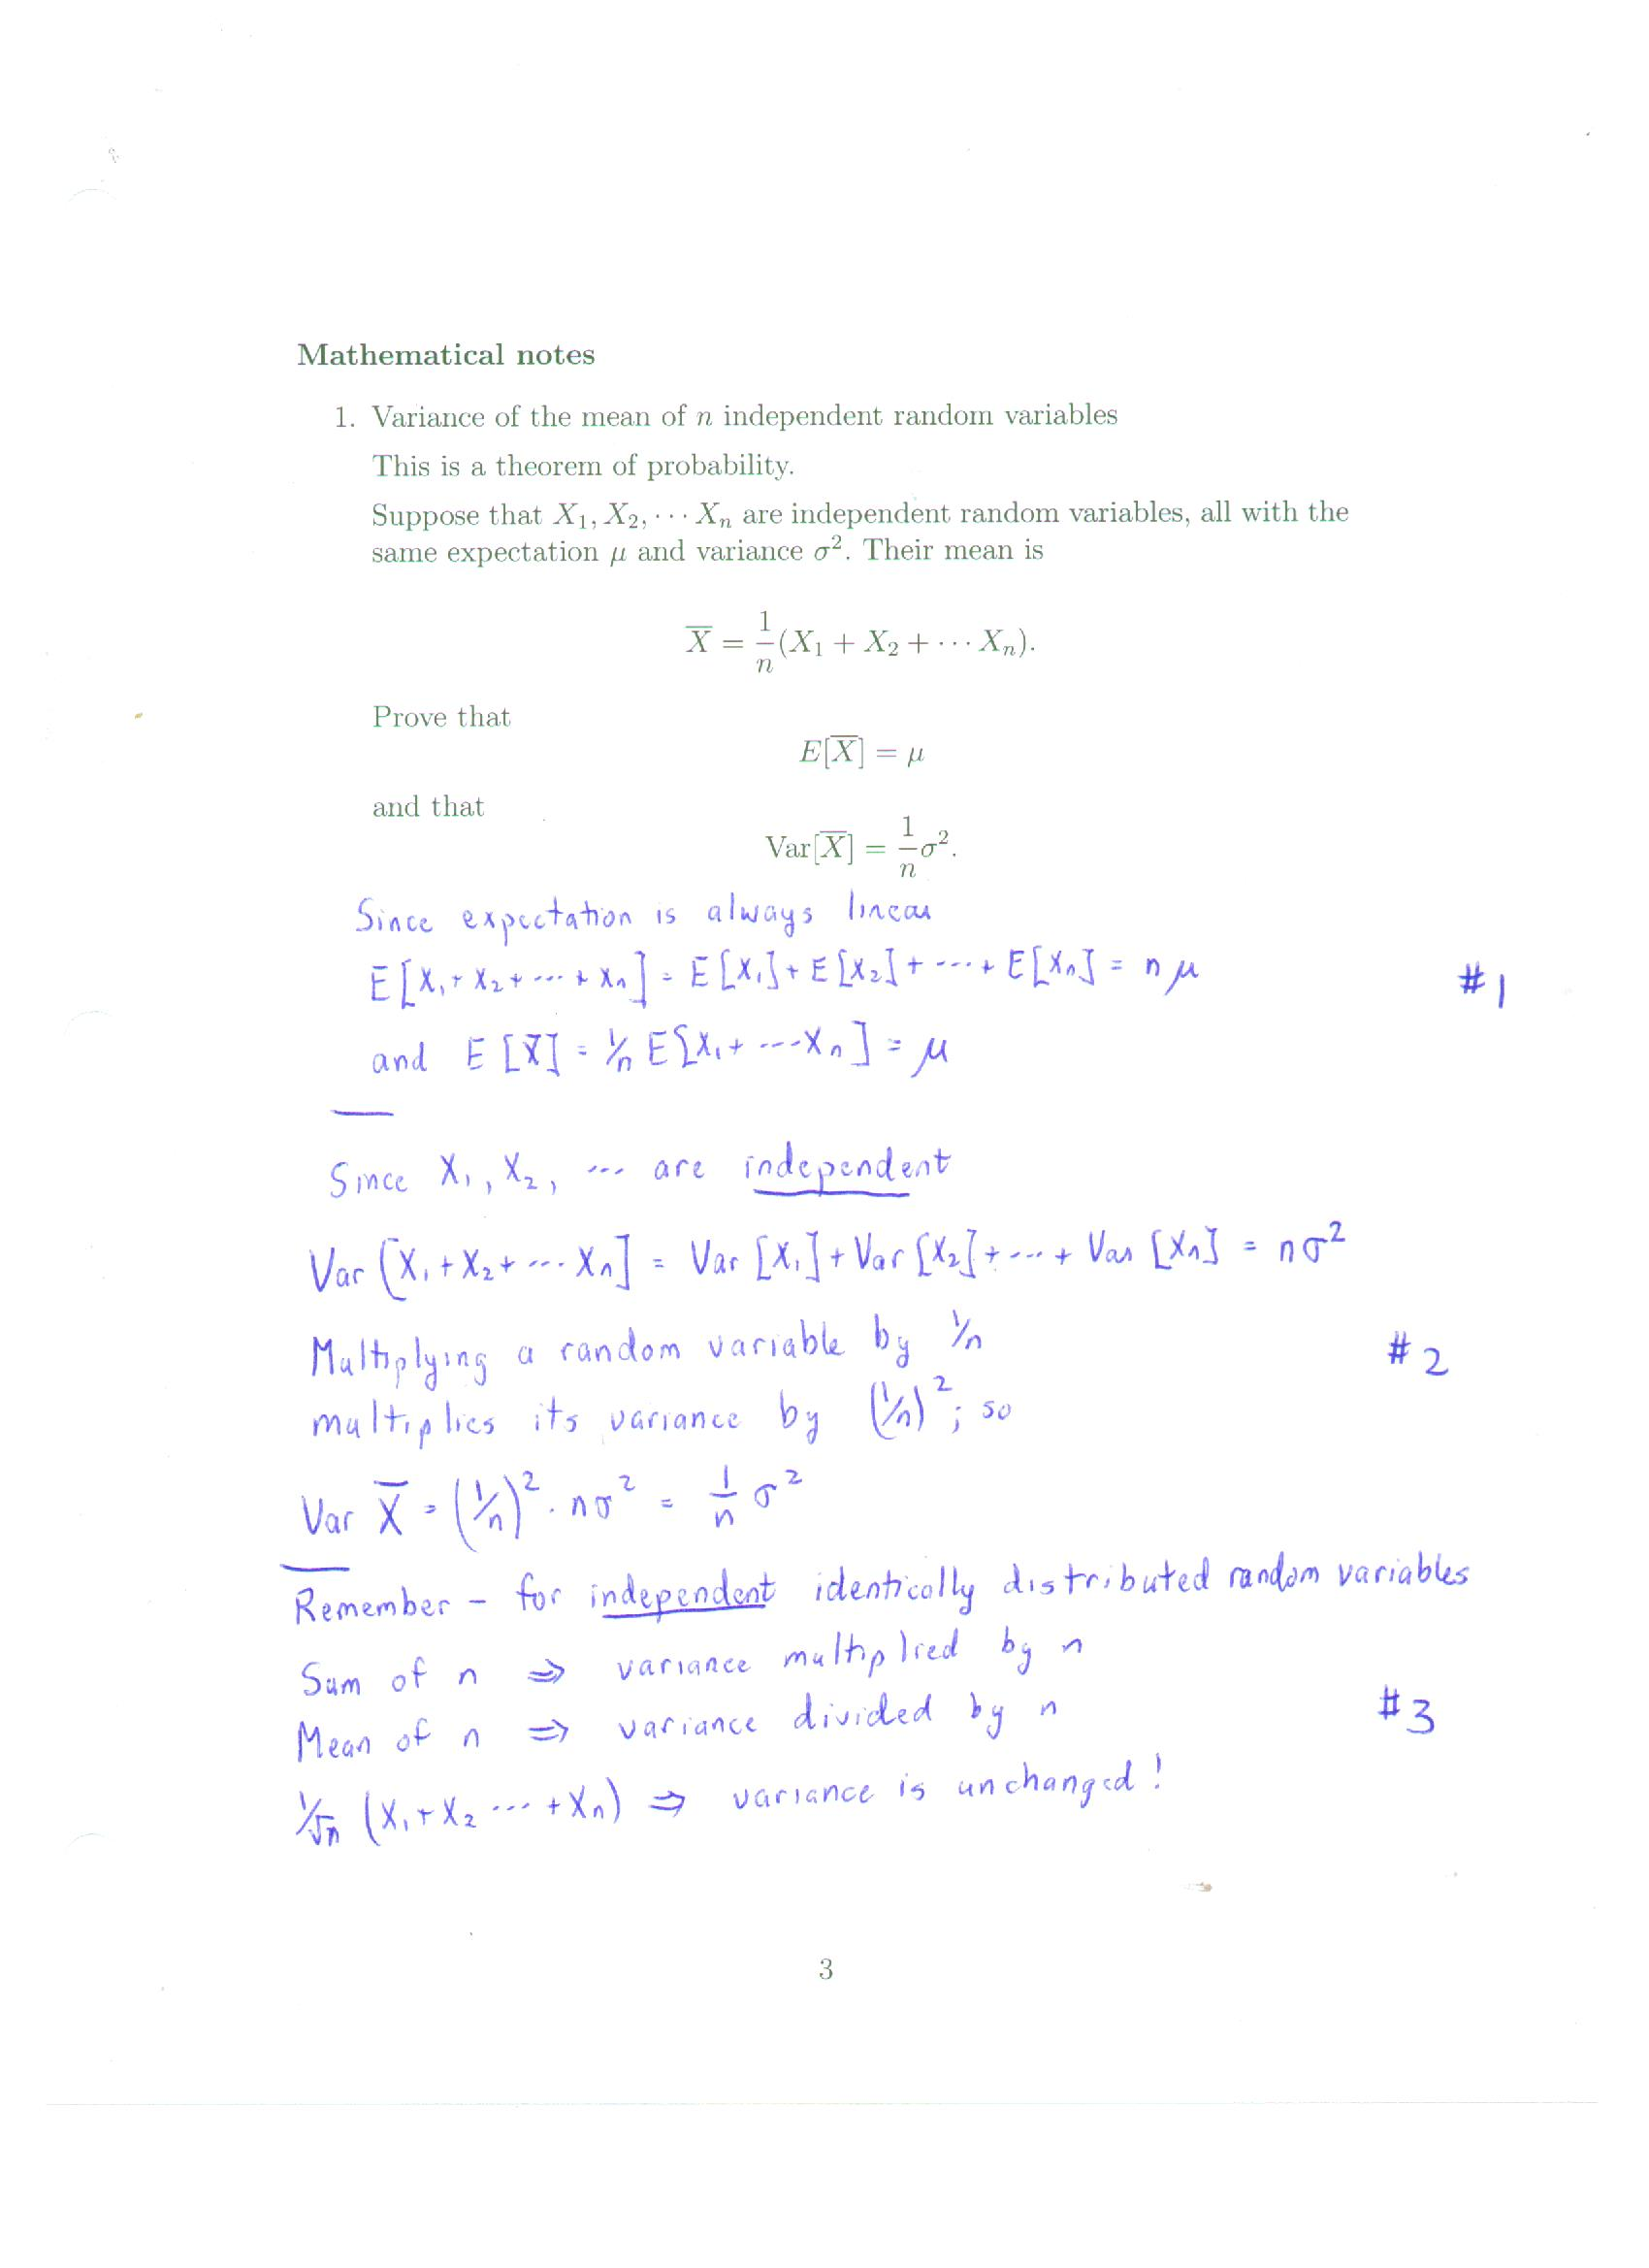 Mathematical notes
1. Variance of the mean of n independent random variables
This is a theorem of probability.
Suppose that X₁, X₂, ··· Xₙ are independent random variables, all with the
same expectation μ and variance σ². Their mean is
X̅ = 1/n (X₁ + X₂ + ··· Xₙ).
Prove that
E[X̅] = μ
and that
Var[X̅] = 1/n σ².
Since expectation is always linear
E[X₁ + X₂ + ··· + Xₙ] = E[X₁] + E[X₂] + ··· + E[Xₙ] = nμ
#1
and E[X̅] = 1/n E[X₁ + ··· Xₙ] = μ
Since X₁, X₂, ··· are independent
Var(X₁ + X₂ + ··· Xₙ] = Var[X₁] + Var[X₂] + ··· + Var[Xₙ] = nσ²
Multiplying a random variable by 1/n
#2
multiplies its variance by (1/n)²; so
Var X̅ = (1/n)² · nσ² = 1/n σ²
Remember – for independent identically distributed random variables
Sum of n ⇒ variance multiplied by n
Mean of n ⇒ variance divided by n
#3
1/√n (X₁ + X₂ ··· + Xₙ) ⇒ variance is unchanged!
3